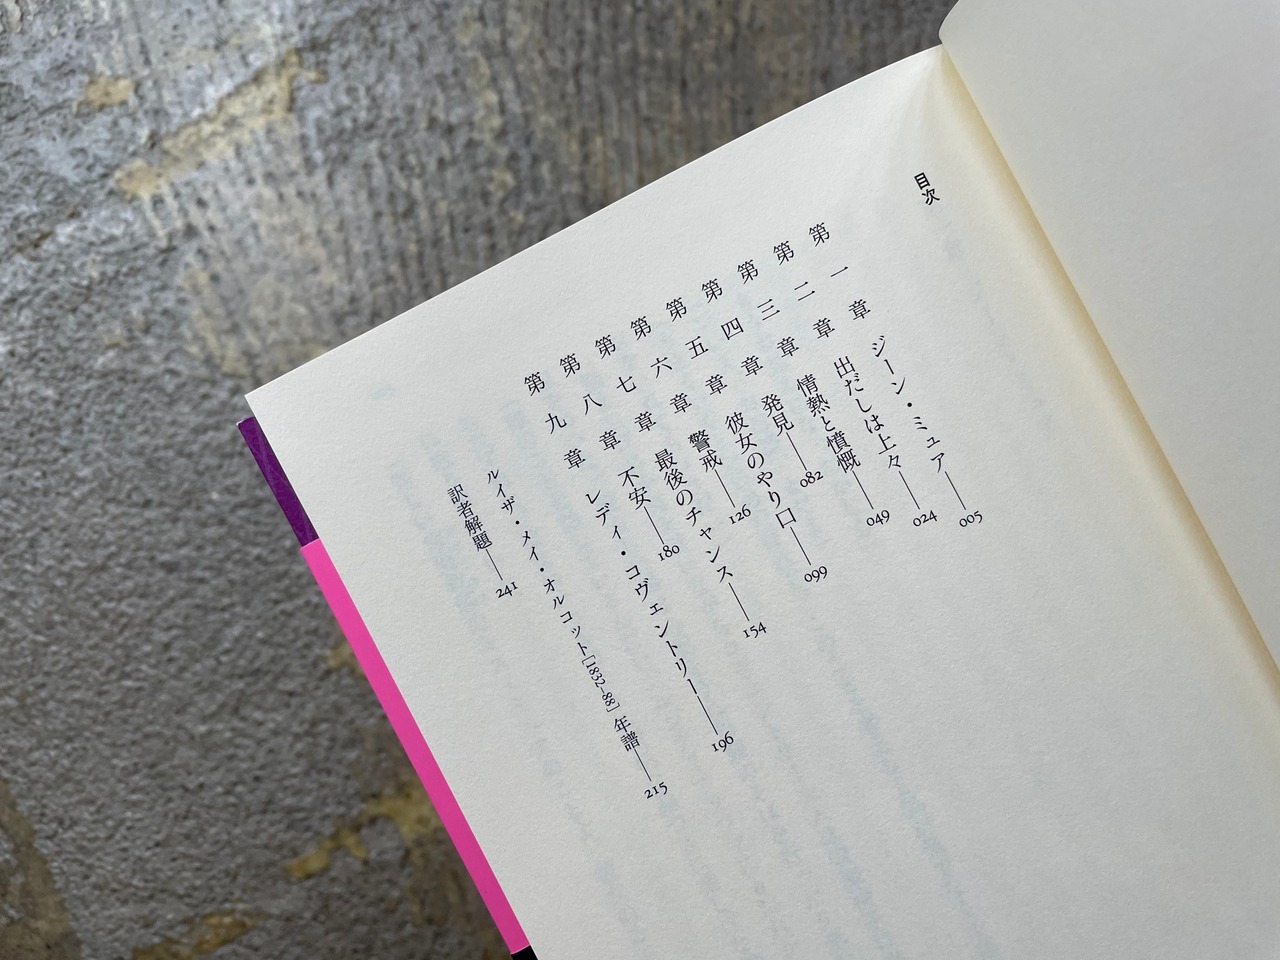 目次
第一章 ジーン・ミュア——005
第二章 出だしは上々——024
第三章 情熱と憤慨——049
第四章 発見——082
第五章 彼女のやり口——099
第六章 警戒——126
第七章 最後のチャンス——154
第八章 不安——180
第九章 レディ・コヴェントリー——196
ルイザ・メイ・オルコット[1832–88]年譜——215
訳者解題——241